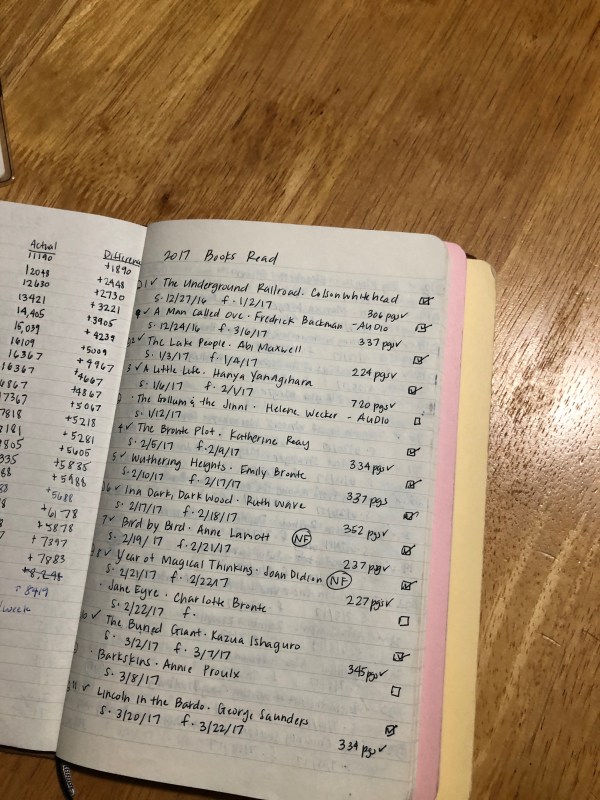 Actual
11190
12048
12630
13421
14,405
15,039
16109
16367
16367
6867
7367
7818
7181
2805
335
88
88
Differenc
+1890
+2448
+2730
+3221
+3905
+4239
+5009
+4967
+4667
+4867
+5067
+5218
+5281
+5605
+5835
+5988
+5688
+6178
+5878
+7397
+7883
+8,291
+8419
/week
2017 Books Read
01 ✓ The Underground Railroad. Colson Whitehead
S. 12/27/16 f. 1/2/17 306 pgs ✓
✓ A Man Called Ove. Fredrick Backman - AUDIO
S. 12/24/16 f. 3/6/17 337 pgs ✓
02 ✓ The Lake People. Abi Maxwell
S. 1/3/17 f. 1/4/17 224 pgs ✓
3 ✓ A Little Life. Hanya Yanagihara
S. 1/6/17 f. 2/1/17 720 pgs ✓
The Gollum & the Jinni. Helene Wecker - AUDIO
S. 1/12/17
4 ✓ The Bronte Plot. Katherine Reay
S. 2/5/17 f. 2/9/17 334 pgs ✓
5 ✓ Wuthering Heights. Emily Bronte
S. 2/10/17 f. 2/17/17 337 pgs
06 ✓ In a Dark, Dark Wood. Ruth Ware
S. 2/17/17 f. 2/18/17 352 pgs ✓
7 ✓ Bird by Bird. Anne Lamott NF
S. 2/19/17 f. 2/21/17 237 pgs ✓
8 ✓ Year of Magical Thinking. Joan Didion NF
S. 2/21/17 f. 2/22/17 227 pgs ✓
. Jane Eyre. Charlotte Bronte
S. 2/22/17 f.
✓ The Buried Giant. Kazua Ishaguro
S. 3/2/17 f. 3/7/17 345 pgs ✓
. Barkskins. Annie Proulx
S. 3/8/17
11 ✓ Lincoln in the Bardo. George Saunders
S. 3/20/17 f. 3/22/17 334 pgs ✓